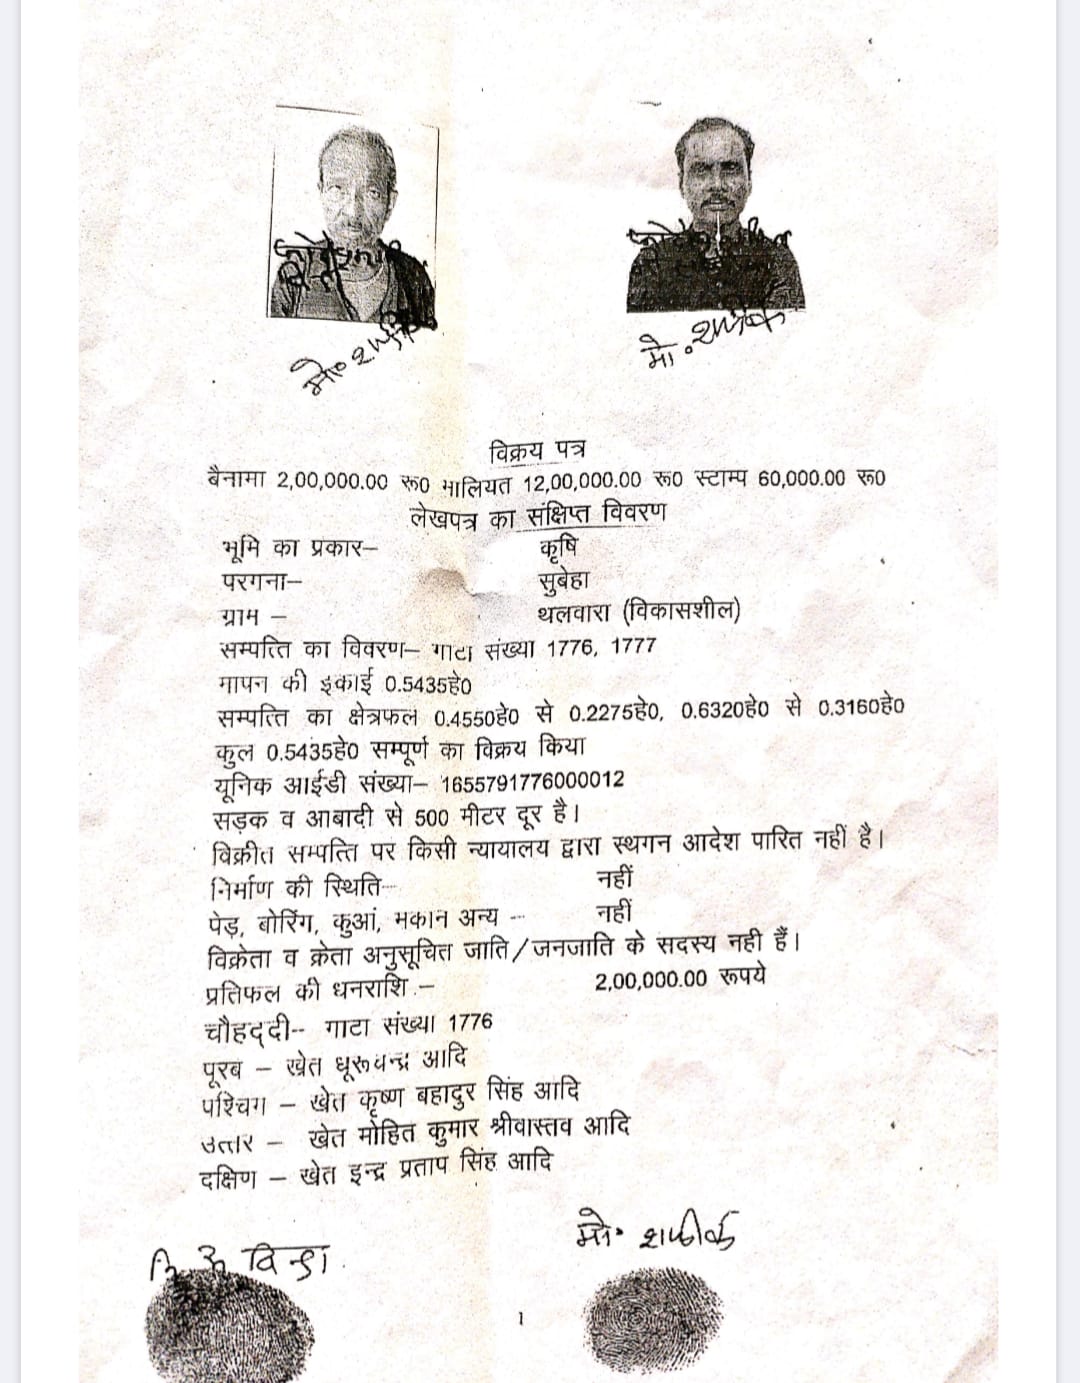 मो० शफीक
मो० शफीक
विक्रय पत्र
बैनामा 2,00,000.00 रू0 मालियत 12,00,000.00 रू0 स्टाम्प 60,000.00 रू0
लेखपत्र का संक्षिप्त विवरण
भूमि का प्रकार– कृषि
परगना– सुबेहा
ग्राम – थलवारा (विकासशील)
सम्पत्ति का विवरण– गाटा संख्या 1776, 1777
मापन की इकाई 0.5435हे0
सम्पत्ति का क्षेत्रफल 0.4550हे0 से 0.2275हे0, 0.6320हे0 से 0.3160हे0
कुल 0.5435हे0 सम्पूर्ण का विक्रय किया
यूनिक आईडी संख्या– 1655791776000012
सड़क व आबादी से 500 मीटर दूर है।
विक्रीत सम्पत्ति पर किसी न्यायालय द्वारा स्थगन आदेश पारित नहीं है।
निर्माण की स्थिति– नहीं
पेड़, बोरिंग, कुआं, मकान अन्य – नहीं
विक्रेता व क्रेता अनुसूचित जाति/जनजाति के सदस्य नही हैं।
प्रतिफल की धनराशि – 2,00,000.00 रूपये
चौहद्दी– गाटा संख्या 1776
पूरब – खेत आदि
पश्चिम – खेत कृष्ण बहादुर सिंह आदि
उत्तर – खेत मोहित कुमार श्रीवास्तव आदि
दक्षिण – खेत इन्द्र प्रताप सिंह आदि
मो० शफीक
नि अं
1